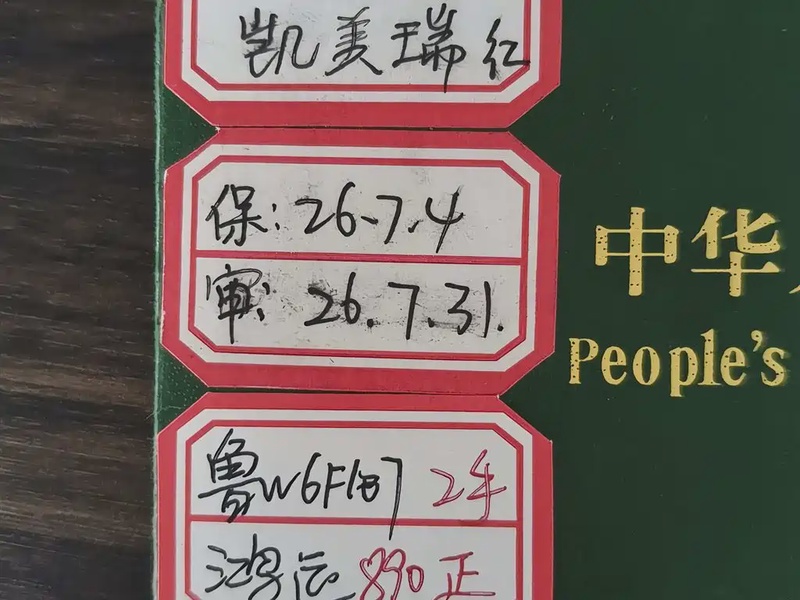 凯美瑞 红
保: 26.7.4
审: 26.7.31.
鲁W6F1B7 2年
鸿运 890 正
中华
People's